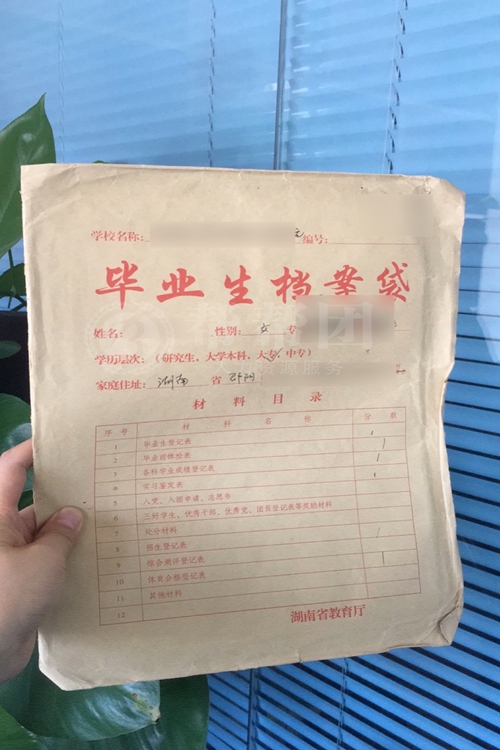 学校名称： 编号：
毕业生档案袋
姓名： 性别：女 专
学历层次：（研究生、大学本科、大专、中专）
家庭住址：湖南 省 邵阳
材料目录
序号 材料名称 份数
1 毕业生登记表 1
2 毕业前体检表 1
3 各科毕业成绩登记表 1
4 实习鉴定表
5 入党、入团申请、志愿书
6 三好学生、优秀干部、优秀党、团员登记表等奖励材料
7 处分材料
8 招生登记表 1
9 综合测评登记表 1
10 体育合格登记表
11 其他材料
12
湖南省教育厅